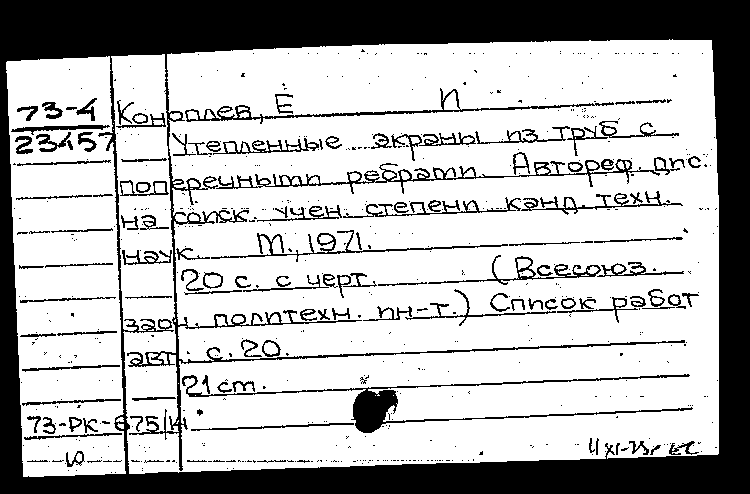 73-4 Коноплев, Е И
23457 Утепленные экраны из труб с
поперечными ребрами. Автореф. дис.
на соиск. учен. степени канд. техн.
наук. М., 1971.
20 с. с черт. (Всесоюз.
заоч. политехн. ин-т.) Список работ
авт.: с. 20.
21 cm.
73-РК-675/И